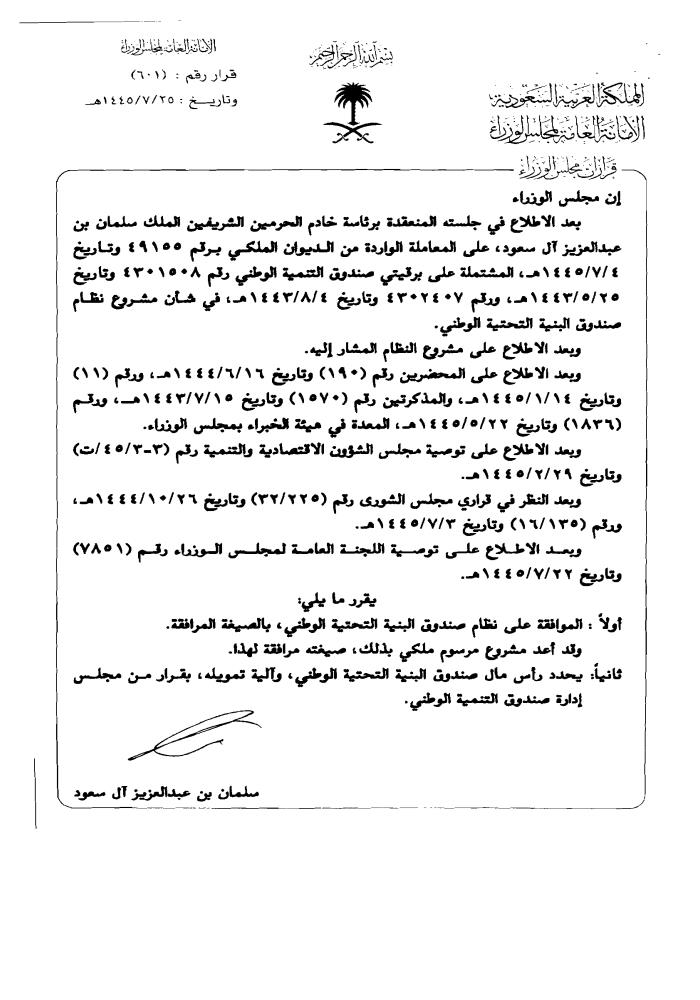 الأمانة العامة لمجلس الوزراء
قرار رقم : (٦٠١)
وتاريـــخ : ١٤٤٥/٧/٢٥هـ
بسم الله الرحمن الرحيم
المملكة العربية السعودية
الأمانة العامة لمجلس الوزراء
قرارات مجلس الوزراء
إن مجلس الوزراء
بعد الاطلاع في جلسته المنعقدة برئاسة خادم الحرمين الشريفين الملك سلمان بن
عبدالعزيز آل سعود، على المعاملة الواردة من الـديوان الملكـي بـرقم ٤٩١٥٥ وتـاريخ
١٤٤٥/٧/٤هـ، المشتملة على برقيتي صندوق التنمية الوطني رقم ٤٣٠١٥٠٨ وتاريخ
١٤٤٣/٥/٢٥هـ، ورقم ٤٣٠٢٤٠٧ وتاريخ ١٤٤٣/٨/٤هـ، في شـأن مشـروع نظـام
صندوق البنية التحتية الوطني.
وبعد الاطلاع على مشروع النظام المشار إليه.
وبعد الاطلاع على المحضرين رقم (١٩٠) وتاريخ ١٤٤٤/٦/١٦هـ، ورقم (١١)
وتاريخ ١٤٤٥/١/١٤هـ، والمذكرتين رقم (١٥٧٠) وتاريخ ١٤٤٣/٧/١٥هـ، ورقـم
(١٨٣٦) وتاريخ ١٤٤٥/٥/٢٢هـ، المعدة في هيئة الخبراء بمجلس الوزراء.
وبعد الاطلاع على توصية مجلس الشؤون الاقتصادية والتنمية رقم (٣-٤٥/٣/ت)
وتاريخ ١٤٤٥/٢/٢٩هـ.
وبعد النظر في قراري مجلس الشورى رقم (٣٢/٢٢٥) وتاريخ ١٤٤٤/١٠/٢٦هـ،
ورقم (١٦/١٣٥) وتاريخ ١٤٤٥/٧/٣هـ.
وبعـد الاطـلاع علـى توصيـة اللجنـة العامـة لمجلـس الـوزراء رقـم (٧٨٥١)
وتاريخ ١٤٤٥/٧/٢٢هـ.
يقرر ما يلي:
أولاً : الموافقة على نظام صندوق البنية التحتية الوطني، بالصيغة المرافقة.
وقد أعد مشروع مرسوم ملكي بذلك، صيغته مرافقة لهذا.
ثانياً: يحدد رأس مال صندوق البنية التحتية الوطني، وآلية تمويله، بقـرار مـن مجلـس
إدارة صندوق التنمية الوطني.
سلمان بن عبدالعزيز آل سعود